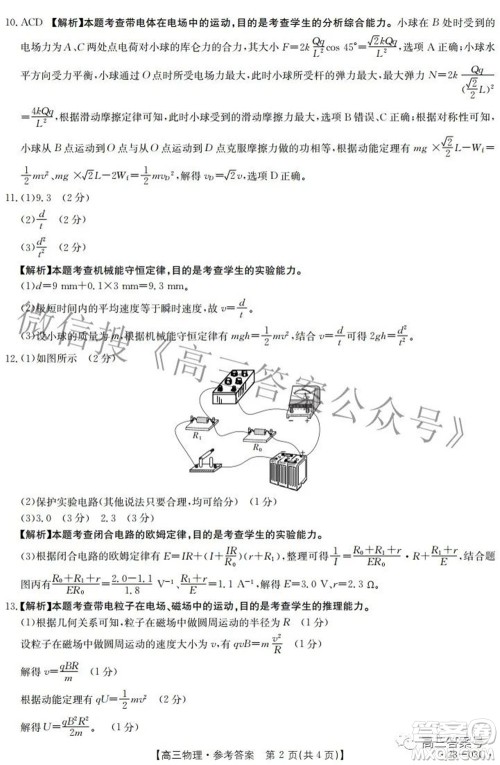 10. ACD 【解析】本题考查带电体在电场中的运动,目的是考查学生的分析综合能力。小球在 B 处时受到的
电场力为 A、C 两处点电荷对小球的库仑力的合力,其大小 F=2k Qq/L² cos 45°=√2kQq/L²,选项 A 正确;小球水
平方向受力平衡,小球通过 O 点时所受电场力最大,此时小球所受杆的弹力最大,最大弹力 N=2k Qq/(√2/2 L)²
=4kQq/L²,根据滑动摩擦定律可知,此时小球受到的滑动摩擦力最大,选项 B 错误、C 正确;根据对称性可知,
小球从 B 点运动到 O 点与从 O 点运动到 D 点克服摩擦力做的功相等,根据动能定理有 mg×√2/2 L-Wf=
1/2 mv²、mg×√2L-2Wf=1/2 mvD²,解得 vD=√2v,选项 D 正确。
11. (1)9.3 (2分)
(2)d/t (2分)
(3)d²/t² (2分)
【解析】本题考查机械能守恒定律,目的是考查学生的实验能力。
(1)d=9 mm+0.1×3 mm=9.3 mm。
(2)极短时间内的平均速度等于瞬时速度,故 v=d/t。
(3)设小球的质量为 m,根据机械能守恒定律有 mgh=1/2 mv²,结合 v=d/t 可得 2gh=d²/t²。
12. (1)如图所示 (2分)
R₁
R₀
(2)保护实验电路(其他说法只要合理,均可给分) (1分)
(3)3.0 (3分) 2.3 (3分)
【解析】本题考查闭合电路的欧姆定律,目的是考查学生的实验能力。
(3)根据闭合电路的欧姆定律有 E=IR+(I+IR/R₀)(r+R₁),整理可得 1/I=(R₀+R₁+r)/(ER₀)·R+(R₁+r)/E,结合题
图丙有 (R₀+R₁+r)/(ER₀)=(2.0-1.1)/1.8 V⁻¹、(R₁+r)/E=1.1 A⁻¹,解得 E=3.0 V、r=2.3 Ω。
13. 【解析】本题考查带电粒子在电场、磁场中的运动,目的是考查学生的推理能力。
(1)根据几何关系可知,粒子在磁场中做圆周运动的半径为 R (1分)
设粒子在磁场中做圆周运动的速度大小为 v,有 qvB=m v²/R (1分)
解得 v=qBR/m (1分)
根据动能定理有 qU=1/2 mv² (2分)
解得 U=qB²R²/2m。 (1分)
【高三物理·参考答案 第 2 页(共 4 页)】
微信搜《高三答案公众号》
高三答案号